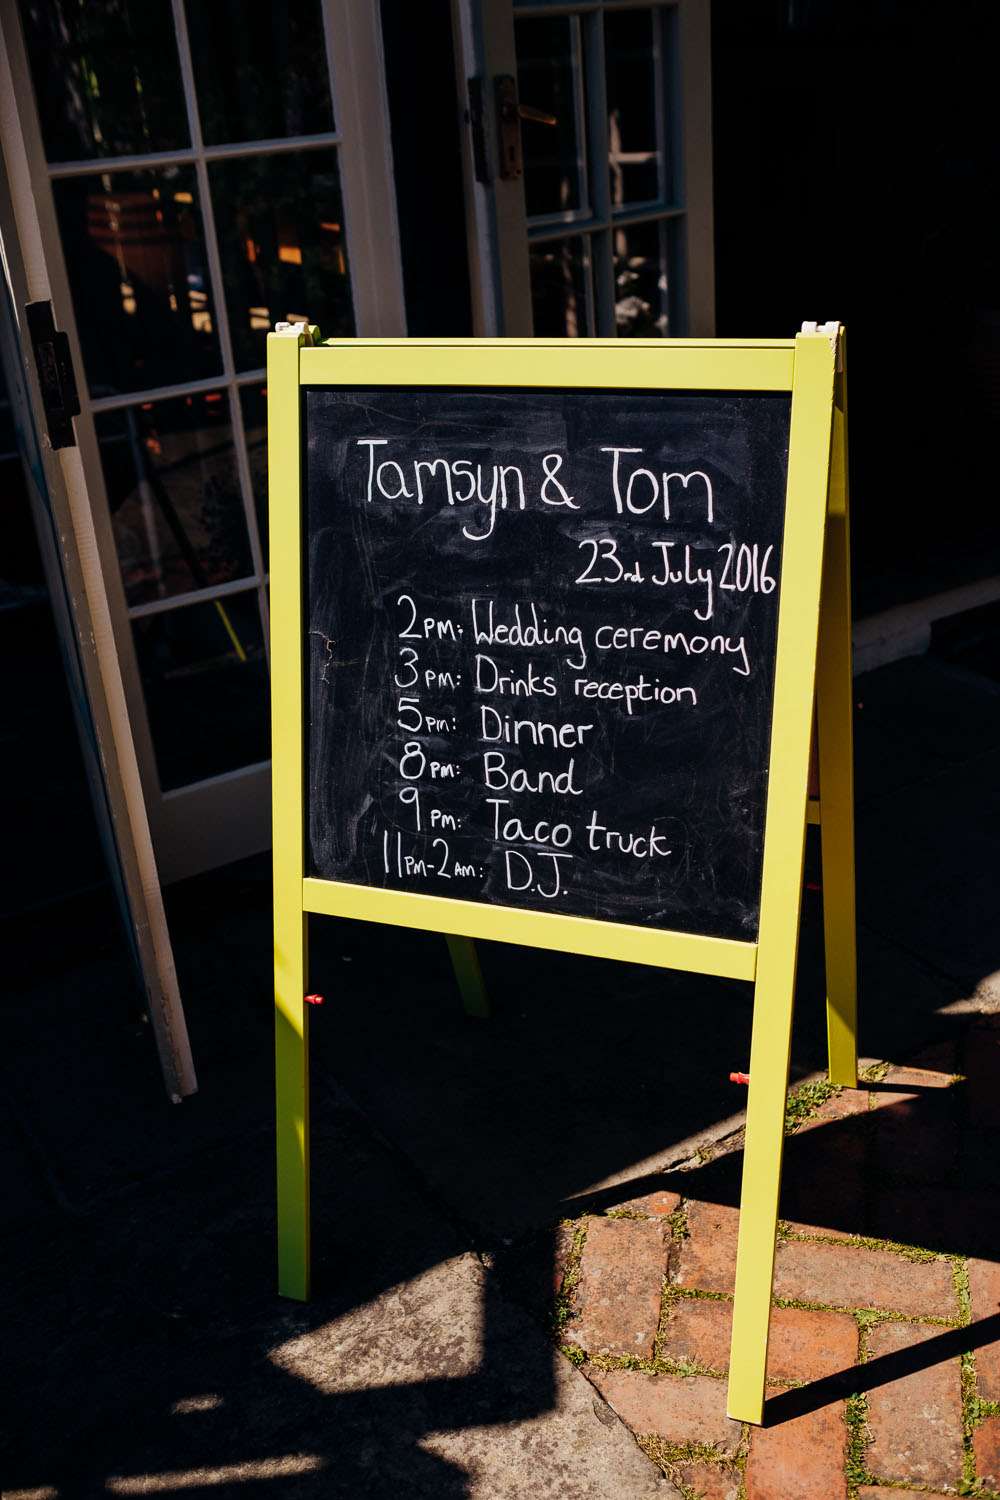 Tamsyn & Tom
23rd July 2016
2PM: Wedding ceremony
3PM: Drinks reception
5pm: Dinner
8PM: Band
9PM: Taco truck
11PM-2AM: D.J.